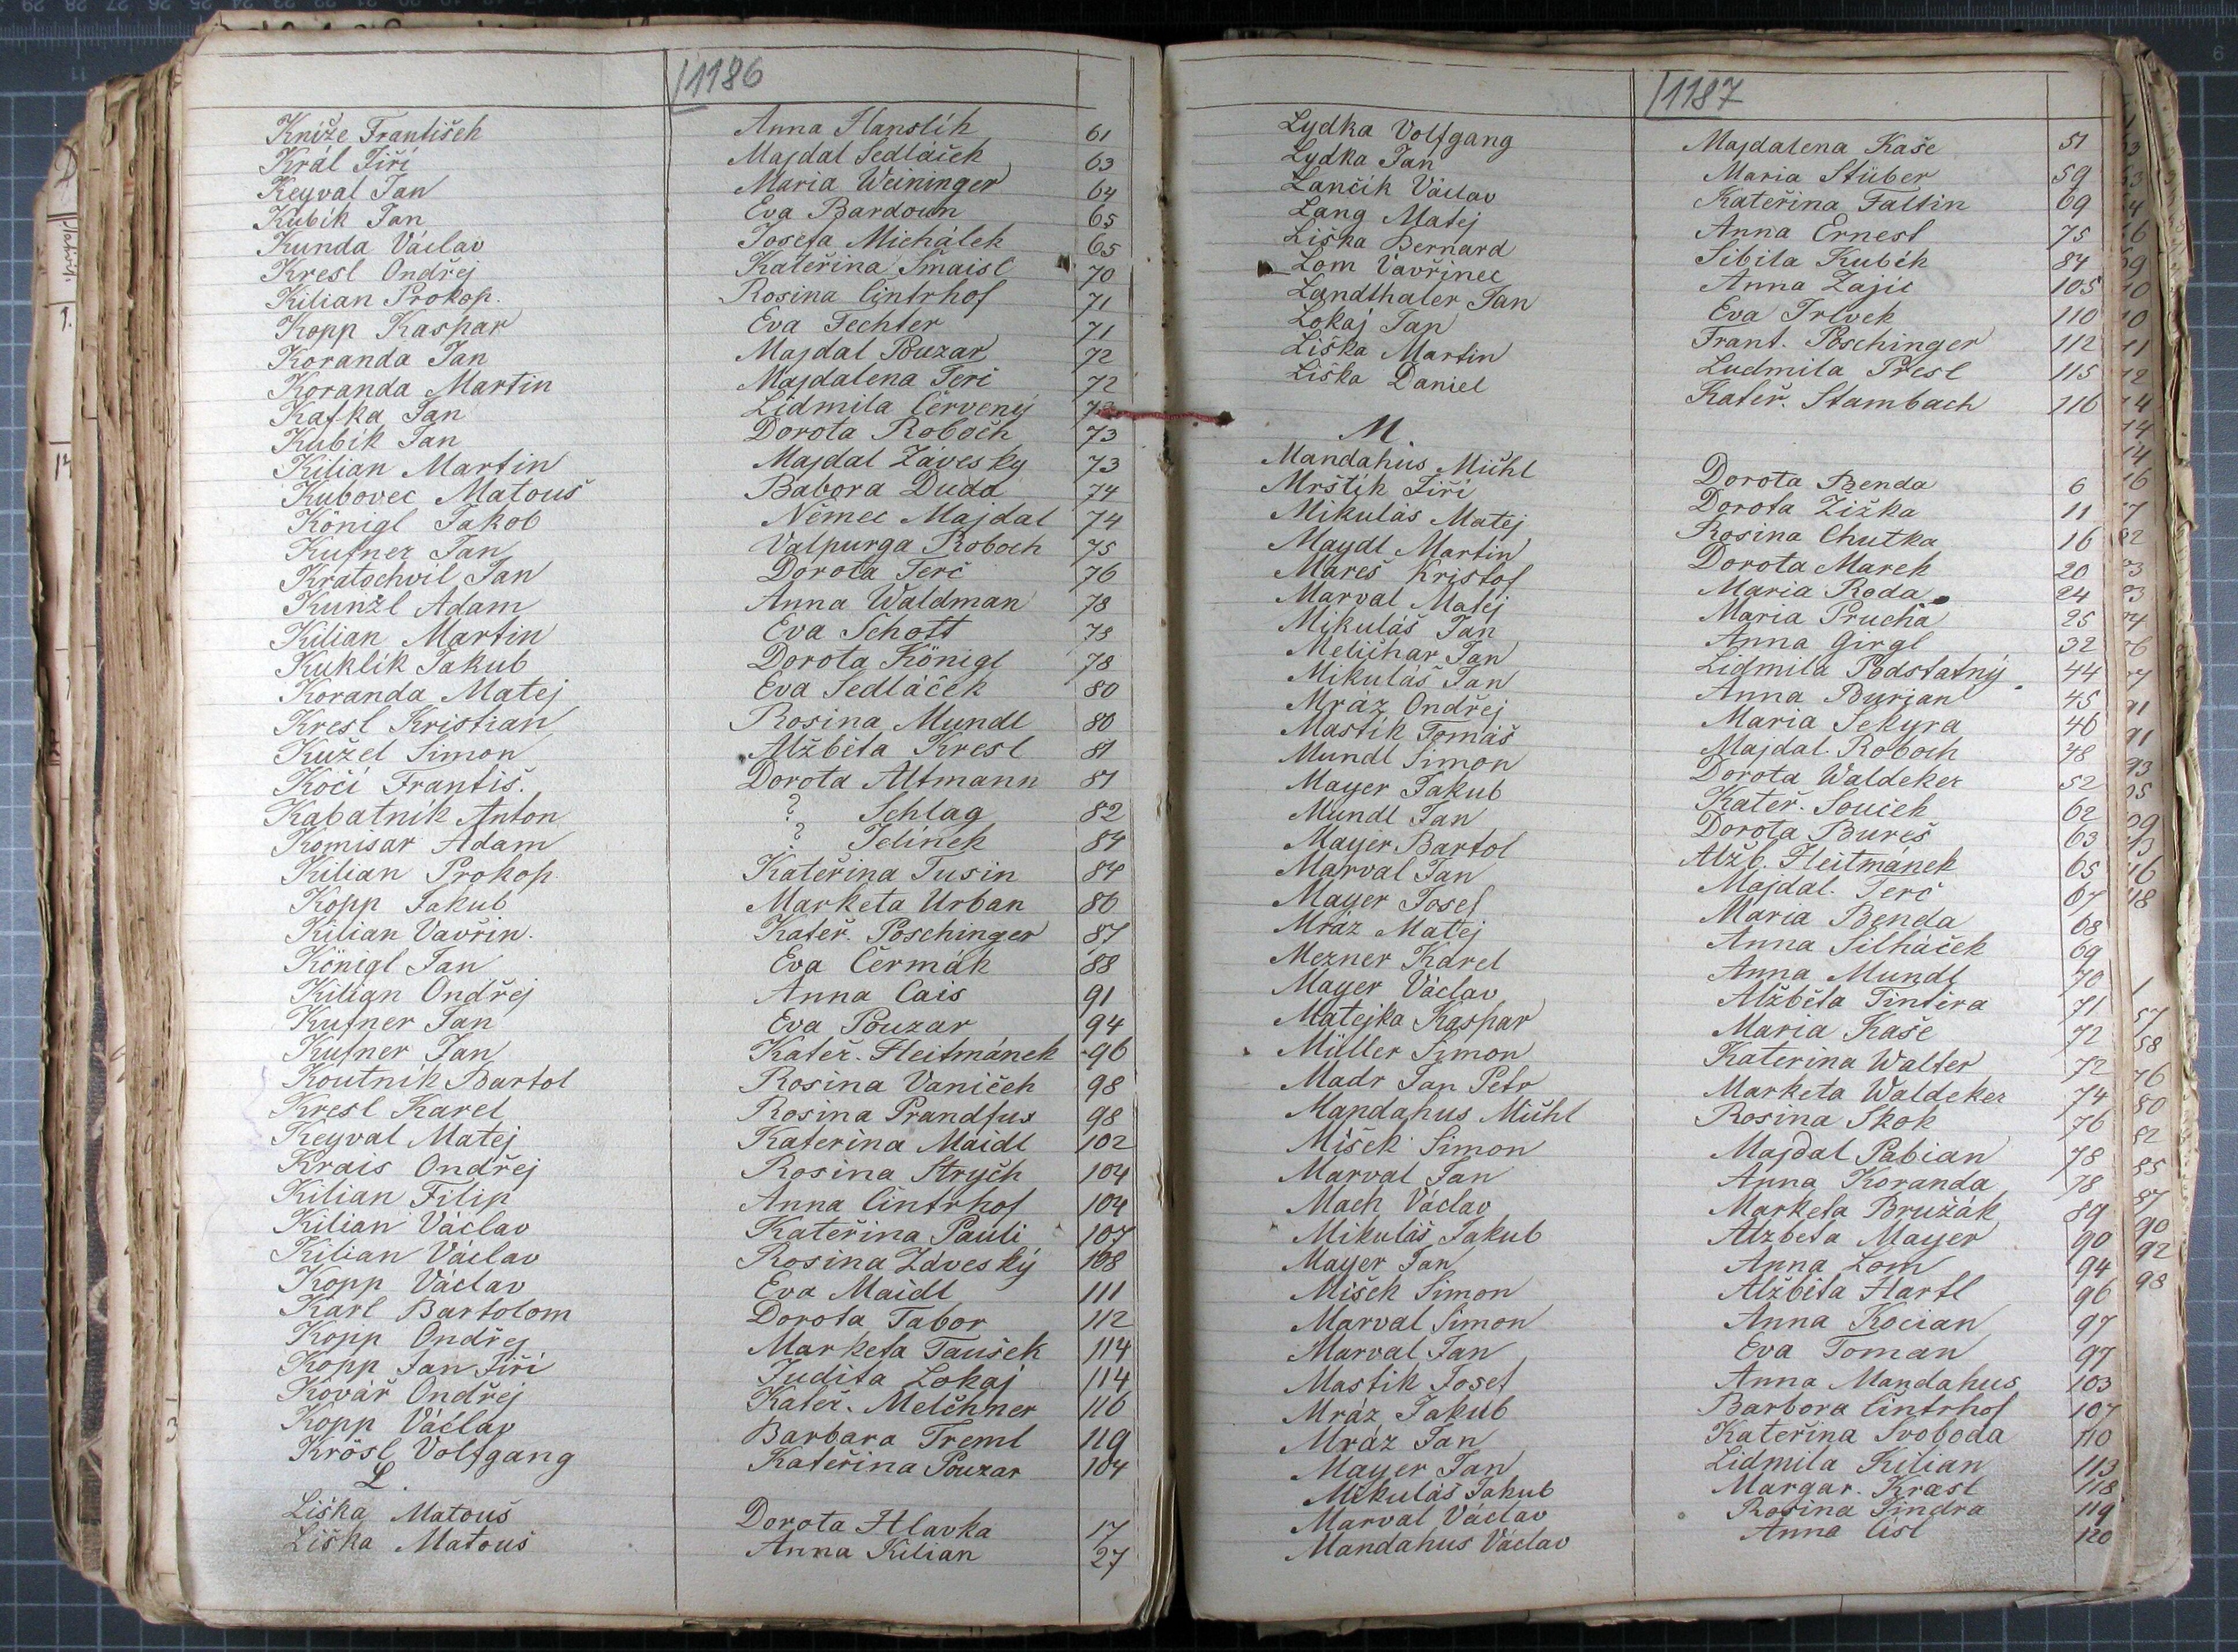 1186
Kníže František Anna Hanslík 61
Král Jiří Majdal Sedláček 63
Keyval Jan Maria Weininger 64
Kubík Jan Eva Bardoun 65
Kunda Václav Josefa Michálek 65
Kresl Ondřej Kateřina Šmaisl 70
Kilian Prokop. Rosina Cintrhof 71
Kopp Kaspar Eva Fechter 71
Koranda Jan Majdal Pouzar 72
Koranda Martin Majdalena Terč 72
Kafka Jan Lidmila Červený
Kubík Jan Dorota Roboch 73
Kilian Martin Majdal Záveský 73
Kubovec Matouš Babora Duda 74
Königl Jakob Němec Majdal 74
Kufner Jan Valpurga Roboch 75
Kratochvíl Jan Dorota Terč 76
Kunžl Adam Anna Waldman 78
Kilian Martin Eva Schott 78
Kuklík Jakub Dorota Königl 78
Koranda Matej Eva Sedláček 80
Kresl Kristian Rosina Mundl 80
Kužel Simon Alžběta Kresl 81
Kočí Františ. Dorota Altmann 81
Kabatník Anton ? Schlag 82
Komisar Adam ? Jelínek 84
Kilian Prokop Kateřina Tusin 84
Kopp Jakub Marketa Urban 86
Kilian Vavřin. Kateř. Poschinger 87
Königl Jan Eva Čermák 88
Kilian Ondřej Anna Cais 91
Kufner Jan Eva Pouzar 94
Kufner Jan Kateř. Heitmánek 96
Koutník Bartol Rosina Vaniček 98
Kresl Karel Rosina Prandfus 98
Keyval Matej Katerina Maidl 102
Krais Ondřej Rosina Strych 104
Kilian Filip Anna Cintrhof 104
Kilian Václav Kateřina Pauli 107
Kilian Václav Rosina Záveský 108
Kopp Václav Eva Maidl 111
Karl Bartolom Dorota Tabor 112
Kopp Ondřej Marketa Taušek 114
Kopp Jan Jiří Judita Lokaj 114
Kovář Ondřej Kateř. Melchner 116
Kopp Václav Barbara Treml 119
Krösl Volfgang Kateřina Pouzar 104
L.
Liška Matouš Dorota Hlavka 17
Liška Matouš Anna Kilian 27
1187
Lydka Volfgang Majdalena Kaše 51
Lydka Jan Maria Stüber 59
Lančík Václav Kateřina Faltin 69
Lang Matej Anna Ernest 75
Liška Bernard Sibila Kubík 84
Lom Vavřinec Anna Zajíc 105
Landthaler Jan Eva Trlvek 110
Lokaj Jan Frant. Pöschinger 112
Liška Martin Ludmila Presl 115
Liška Daniel Kateř. Stambach 116
M.
Mandahus Michl Dorota Benda 6
Mrštík Jiří Dorota Žižka 11
Mikuláš Matej Rosina Chutka 16
Maydl Martin Dorota Marek 20
Mareš Kristof Maria Roda 24
Marval Matěj Maria Prucha 25
Mikuláš Jan Anna Girgl 32
Melichar Jan Lidmila Podstatný 44
Mikuláš Jan Anna Burian 45
Mráz Ondřej Maria Sekyra 46
Mastík Tomáš Majdal. Roboch 48
Mundl Simon Dorota Waldeker 52
Mayer Jakub Kateř. Souček 62
Mundl Jan Dorota Bureš 63
Mayer Bartol Alžb. Heitmánek 65
Marval Jan Majdal. Terč 67
Mayer Josef Maria Benda 68
Mráz Matej Anna Silháček 69
Mezner Karel Anna Mundl 70
Mayer Václav Alžběta Tintěra 71
Matejka Kaspar Maria Kaše 72
Müller Simon Katerina Walter 72
Madr Jan Petr Marketa Waldeker 74
Mandahus Michl Rosina Skok 76
Mišek Simon Majdal Pabian 78
Marval Jan Anna Koranda 78
Mach Václav Marketa Bružák 89
Mikuláš Jakub Alzbeta Mayer 90
Mayer Jan Anna Lom 94
Mišek Simon Alžběta Hartl 96
Marval Simon Anna Kocian 97
Marval Jan Eva Toman 97
Mastik Josef Anna Mandahus 103
Mráz Jakub Barbora Cintrhof 107
Mráz Jan Kateřina Svoboda 110
Mayer Jan Lidmila Kilian 113
Mikuláš Jakub Margar. Krasl 118
Marval Václav Rosina Jindra 119
Mandahus Václav Anna Císl 120